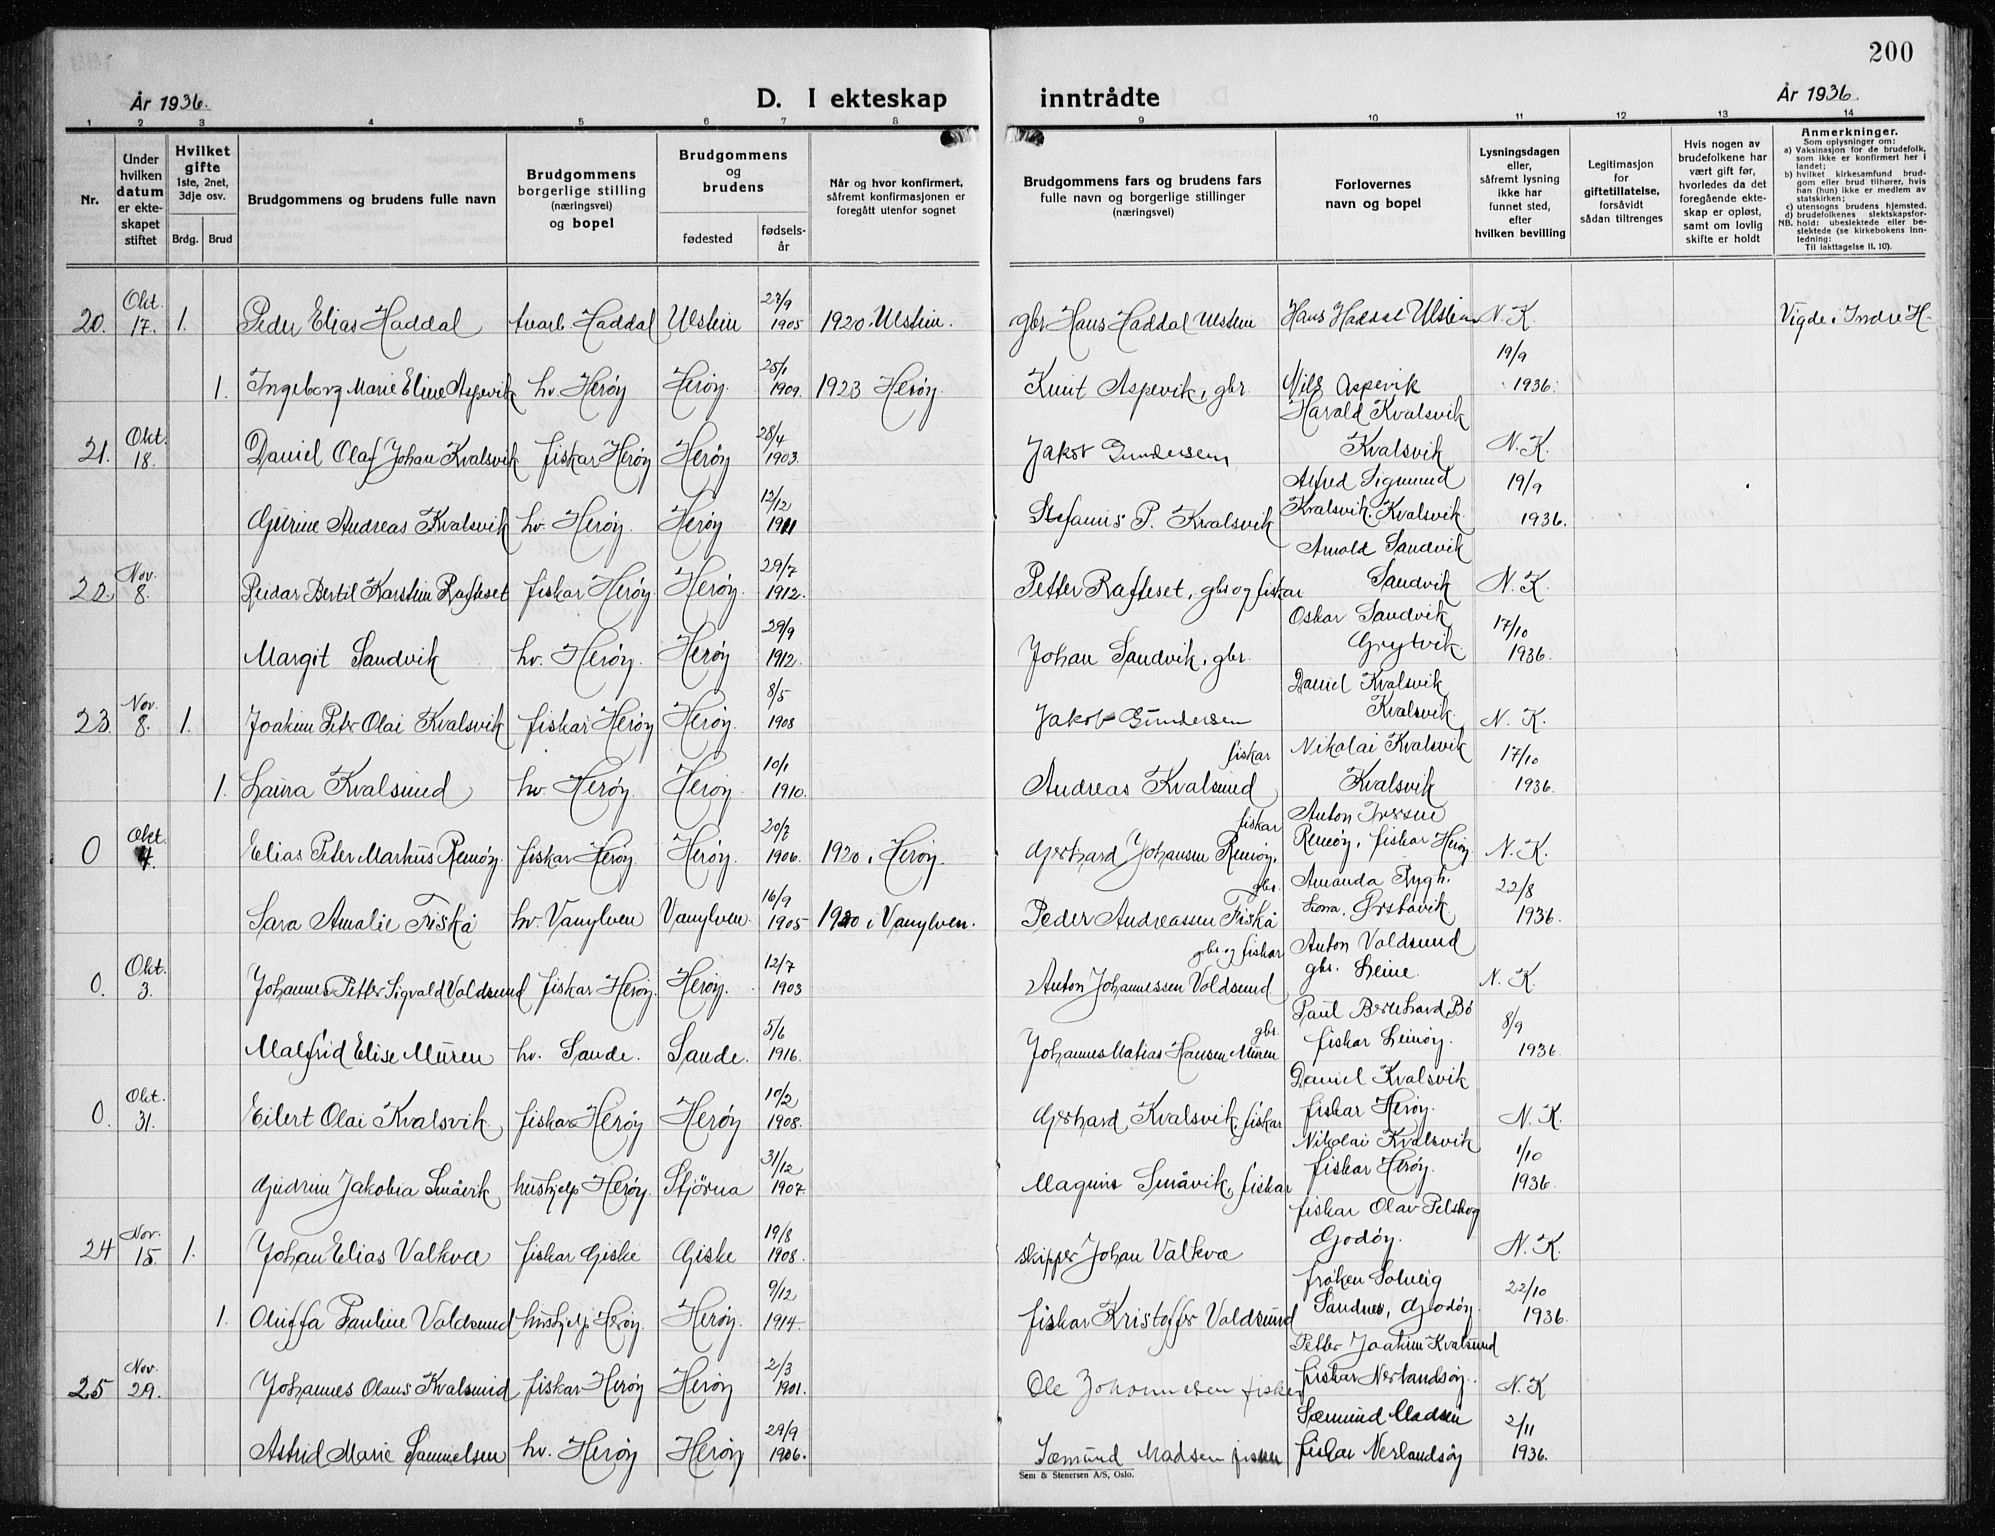 200
År 1936. D. I ekteskap inntrådte År 1936.
1 2 3 4 5 6 7 8 9 10 11 12 13 14
Nr.
Under hvilken datum er ekteskapet stiftet
Hvilket gifte 1ste, 2net, 3dje osv.
Brdg. Brud
Brudgommens og brudens fulle navn
Brudgommens borgerlige stilling (næringsvei) og bopel
Brudgommens og brudens
fødested fødselsår
Når og hvor konfirmert, såfremt konfirmasjonen er foregått utenfor sognet
Brudgommens fars og brudens fars fulle navn og borgerlige stillinger (næringsvei)
Forlovernes navn og bopel
Lysningsdagen eller, såfremt lysning ikke har funnet sted, efter hvilken bevilling
Legitimasjon for giftetillatelse, forsåvidt sådan tiltrenges
Hvis nogen av brudefolkene har vært gift før, hvorledes da det foregående ekteskap er opløst, samt om lovlig skifte er holdt
Anmerkninger.
Som oplysninger om:
a) Vaksinasjon for de brudefolk, som ikke er konfirmert her i landet;
b) hvilket kirkesamfund brudgom eller brud tilhører, hvis han (hun) ikke er medlem av statskirken;
c) utensogns brudens hjemsted.
d) brudefolkenes slektskapsforhold: ubeslektede eller beslektede (se kirkebokens innledning:
NB. Til iakttagelse II. 10).
20. Okt. 17. 1. Peder Elias Haddal tvarb. Haddal Ulstein 27/9 1905 1920. Ulstein. gbr Hans Haddal Ulstein Hans Haddal Ulstein N. K. Vigde i Indre H.
1. Ingeborg Marie Eline Aspevik hv. Herøy Herøy. 25/1 1909. 1923 Herøy. Knut Aspevik, gbr. Nils Aspevik 19/9 1936.
21. Okt. 18. Daniel Olaf Johan Kvalsvik fiskar Herøy Herøy 28/4 1903. Jakob Gundersen Harald Kvalsvik Kvalsvik N. K.
Gurine Andreas Kvalsvik hv. Herøy. Herøy 12/12 1911 Stefanus P. Kvalsvik Alfred Sigmund Kvalsvik, Kvalsvik. 19/9 1936.
22. Nov. 8. Reidar Bertil Karstein Rafteset fiskar Herøy Herøy. 29/7 1912. Petter Rafteset, gbr og fiskar Arnold Sandvik Sandvik N. K.
Margit Sandvik hv. Herøy. Herøy 29/9 1912. Johan Sandvik, gbr. Oskar Sandvik Grytvik. 17/10 1936.
23. Nov. 8. 1. Joakim Peter Olai Kvalsvik fiskar Herøy Herøy. 8/5 1908 Jakob Gundersen fiskar Daniel Kvalsvik Kvalsvik. N. K.
1. Laura Kvalsund hv. Herøy. Herøy. 10/1 1910. Andreas Kvalsund fiskar Nikolai Kvalsvik Kvalsvik 17/10 1936.
0 Okt. 4. Elias Peter Markus Remøy. fiskar Herøy Herøy. 20/7 1906. 1920 i Herøy. Gerhard Johansen Remøy, gbr. Anton Remøy, fiskar Herøy N. K.
Sara Amalie Fiskå hv. Vanylven Vanylven. 16/9 1905 1920 i Vanylven. Peder Andreassen Fiskå gbr og fiskar Amanda Ørstavik. 22/8 1936.
0. Okt. 3. Johannes Petter Sigvald Voldsund fiskar Herøy. Herøy. 12/7 1903 Anton Johannessen Voldsund gbr. Anton Voldsund gbr. Leine. N. K.
Malfrid Elise Muren hv. Sande. Sande. 5/6 1916. Johannes Matias Hansen Muren Paul Bernhard Bø fiskar Leinøy. 8/9 1936.
0. Okt. 31. Eilert Olai Kvalsvik fiskar Herøy Herøy 17/2 1908. Gerhard Kvalsvik, fiskar Daniel Kvalsvik fiskar Herøy. N. K.
Gudrun Jakobia Småvik hushjelp Herøy. Stjørna 31/12 1907. Magnus Småvik, fiskar Nikolai Kvalsvik fiskar Herøy. 1/10 1936.
24 Nov. 15. 1. Johan Elias Valkvæ fiskar Giske Giske 19/8 1908. skipper Johan Valkvæ fiskar Olav Godøy. N. K.
1. Oluffa Pauline Voldsund hushjelp Herøy. Herøy. 9/12 1914. fiskar Kristoffer Voldsund frøken Solveig Sandnes, Godøy. 22/10 1936.
25 Nov. 29. Johannes Olaus Kvalsund fiskar Herøy Herøy 2/3 1901. Ole Johannesen fisker Petter Joakim Kvalsund fiskar Nerlandsøy. N. K
Astrid Marie Samuelsen hv. Herøy Herøy 29/9 1906. Sæmund Madsen fisker Sæmund Madsen fiskar Nerlandsøy 2/11 1936.
Sem & Stenersen A/S, Oslo.